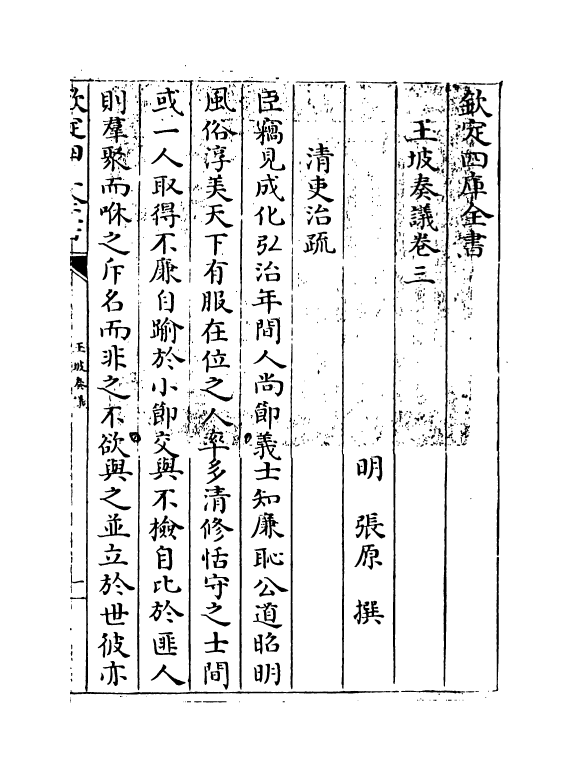 欽定四庫全書
玉坡奏議卷三
明　張原　撰
清吏治疏
臣竊見成化弘治年間人尚節義士知廉恥公道昭明
風俗淳美天下有服在位之人率多清修恬守之士間
或一人取得不廉自踰於小節交與不檢自比於匪人
則羣聚而咻之斥名而非之不欲與之並立於世彼亦
欽定四庫全書
玉坡奏議
一